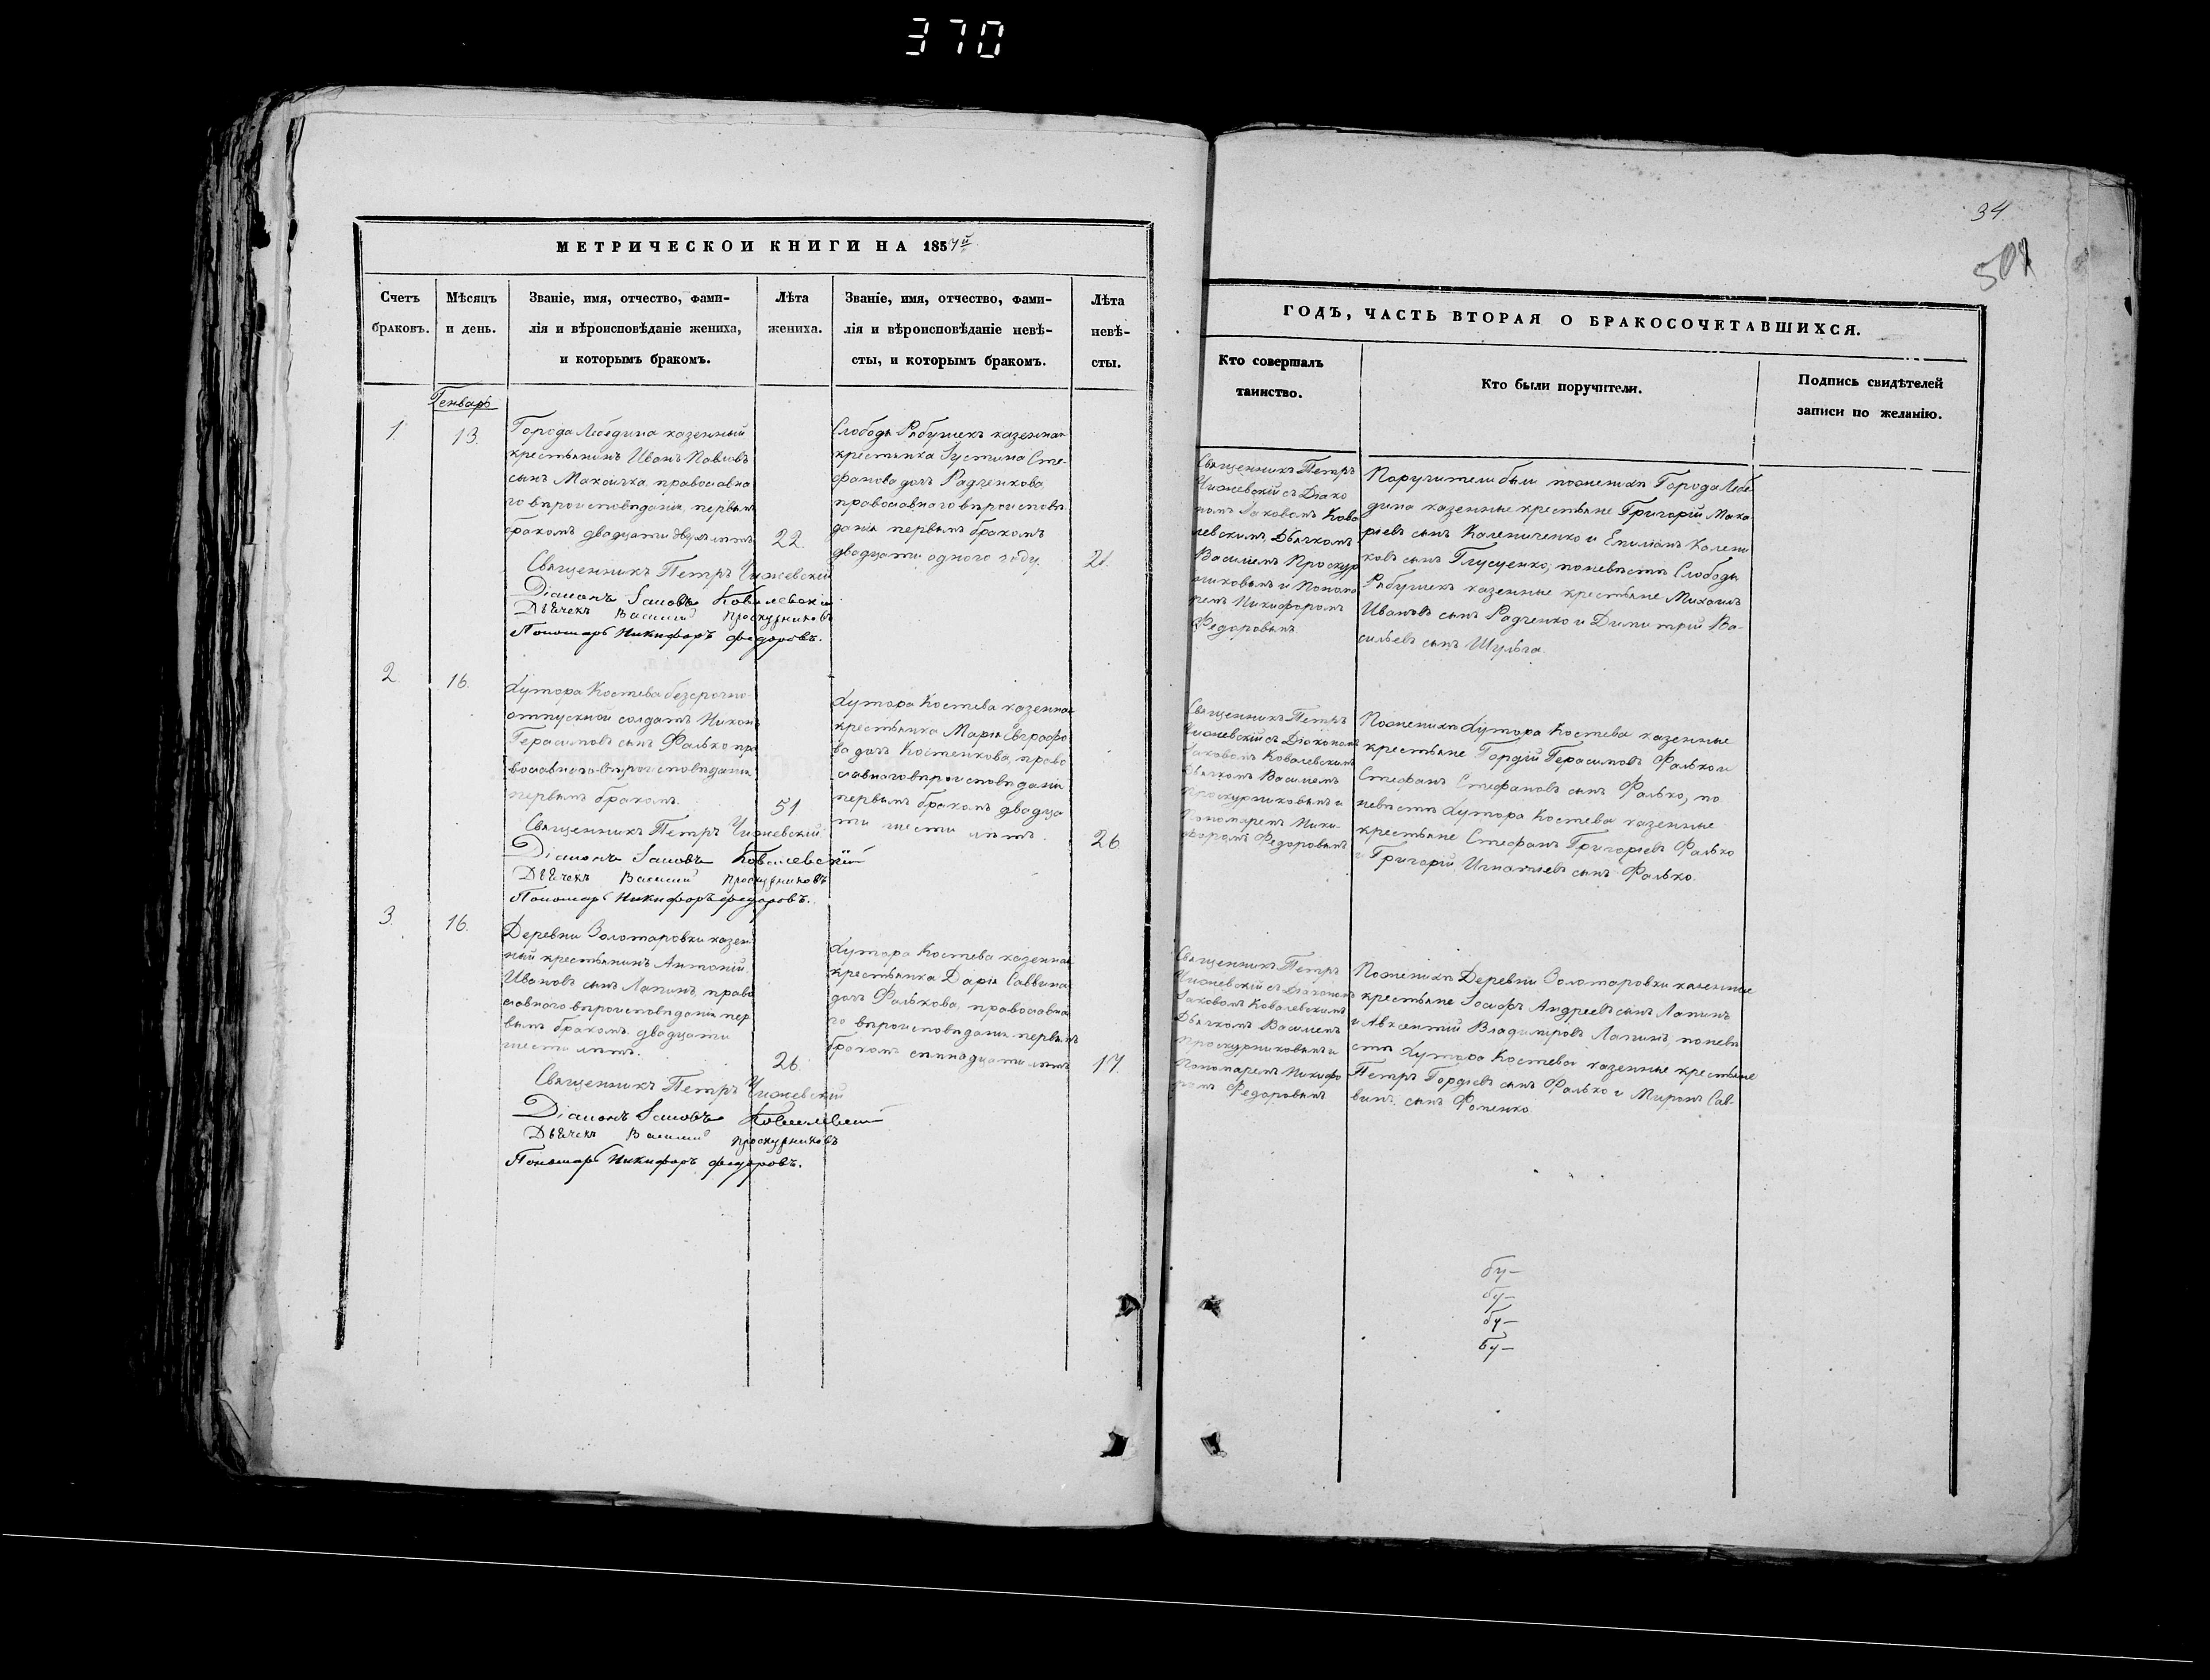 370
34.
МЕТРИЧЕСКОИ КНИГИ НА 185
Счетъ
браковъ.
Мѣсяцъ
и день.
Званіе, имя, отчество, фами-
лія и вѣроисповѣданіе жениха,
и которымъ бракомъ.
Лѣта
жениха.
Званіе, имя, отчество, фами-
лія и вѣроисповѣданіе невѣ-
сты, и которымъ бракомъ.
Лѣта
невѣ-
сты.
Генварь
1.
13.
Города Лебедина казенный
крестьянинъ Иванъ Павловъ
сынъ православна
го вѣроисповѣданія, первымъ
бракомъ двадцати двухъ лѣтъ
22.
Священникъ Петръ Чижевскій
Діаконъ Іаковъ Ковалевскій
Дьячекъ Василий Проскурниковъ
Пономарь Никифоръ федоровъ.
Слободы Рябушекъ казенная
крестьянка Іустина Сте-
фанова дочь Радченкова,
православнаго вѣроисповѣ
данія первымъ бракомъ
двадцати одного году.
21.
2.
16.
Хутора Костева безсрочно-
отпускной солдатъ Никонъ
Герасимовъ сынъ Фалько пра
вославнаго вѣроисповѣданія
первымъ бракомъ.
51
Священникъ Петръ Чижевскій
Діаконъ Іаковъ Ковалевскій
Дьячекъ Василий Проскурниковъ
Пономарь Никифоръ федоровъ.
Хутора Костева казенная
крестьянка Марія Евграфо
ва дочь Костенкова, право
славнаго вѣроисповѣданія
первымъ бракомъ двадца
ти шести лѣтъ.
26.
3.
16.
Деревни Золотаровки казен
ный крестьянинъ Антоній
Ивановъ сынъ Лапинъ, право
славнаго вѣроисповѣданія пер
вымъ бракомъ двадцати
шести лѣтъ.
26.
Священникъ Петръ Чижевскій
Діаконъ Іаковъ Ковалевскій
Дьячекъ Василий Проскурниковъ
Пономарь Никифоръ федоровъ.
Хутора Костева казенная
крестьянка Дарія Саввина
дочь Фалькова, православна
го вѣроисповѣданія первымъ
бракомъ семнадцати лѣтъ
17.
ГОДЪ, ЧАСТЬ ВТОРАЯ О БРАКОСОЧЕТАВШИХСЯ.
Кто совершалъ
таинство.
Кто были поручители.
Подпись свидѣтелей
записи по желанію.
Священникъ Петръ
Чижевскій съ Діако
номъ Іаковомъ Кова
левскимъ, Дьячкомъ
Василіемъ Проскур
никовымъ и Понома
ремъ Никифоромъ
Федоровымъ
Поручители были по женихѣ Города Лебе
дина казенные крестьяне Григорій Мака
ріевъ сынъ Калениченко и Емиліанъ Калени
ковъ сынъ Глущенко; по невѣстѣ Слободы
Рябушекъ казенные крестьяне Михаилъ
Ивановъ сынъ Радченко и Димитрій Ва-
сильевъ сынъ Шульга.
Священникъ Петръ
Чижевскій съ Діакономъ
Іаковомъ Ковалевскимъ
Дьячкомъ Василіемъ
Проскурниковымъ и
Пономаремъ Ники-
форомъ Федоровымъ
По женихѣ Хутора Костева казенные
крестьяне Гордій Герасимовъ Фалько и
Стефанъ Стефановъ сынъ Фалько, по
невѣстѣ Хутора Костева казенные
крестьяне Стефанъ Григоріевъ Фалько
и Григорій Игнатіевъ сынъ Фалько.
Священникъ Петръ
Чижевскій съ Діакономъ
Іаковомъ Ковалевскимъ
Дьячкомъ Василіемъ
Проскурниковымъ и
Пономаремъ Никифо
ромъ Федоровымъ
По женихѣ Деревни Золотаровки казенные
крестьяне Іосифъ Андреевъ сынъ Лапинъ
и Авксентій Владиміровъ Лапинъ, по невѣ
стѣ Хутора Костева казенные крестьяне
Петръ Гордіевъ сынъ Фалько и Миронъ Сав-
винъ сынъ Фоменко.
бу—
бу—
бу—
бу—